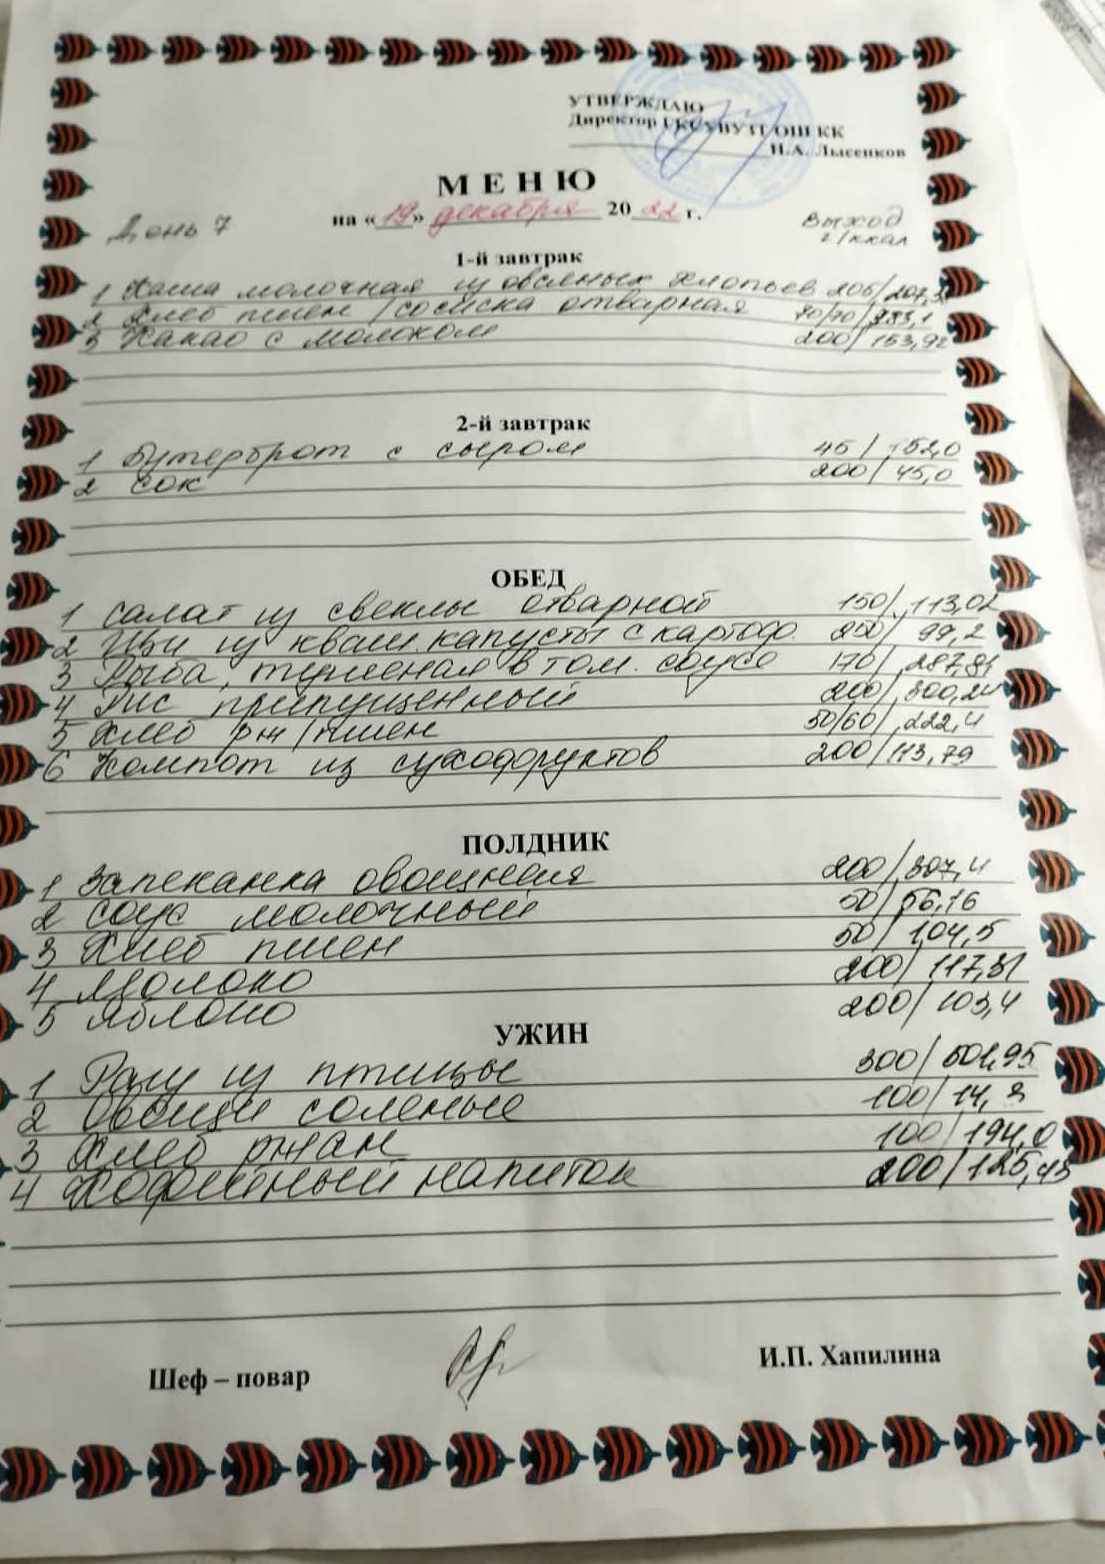 УТВЕРЖДАЮ
Директор ГКСУВУТГ ОШ КК
Н.А. Лысенков
МЕНЮ
на «19» декабря 2022 г.
День 7
Выход
г/ккал
1-й завтрак
1 Каша молочная из овсяных хлопьев 205/207,3
2 Хлеб пшен/сосиска отварная 70/70/383,1
3 Какао с молоком 200/153,92
2-й завтрак
1 Бутерброт с сыром 45/152,0
2 Сок 200/45,0
ОБЕД
1 Салат из свеклы отварной 150/113,02
2 Щи из кваш. капусты с картоф. 250/99,2
3 Рыба, тушеная в том. соусе 170/287,81
4 Рис припущенный 200/300,24
5 Хлеб рж/пшен 50/60/222,4
6 Компот из сухофруктов 200/113,79
ПОЛДНИК
1 Запеканка овощная 200/307,4
2 Соус молочный 50/56,16
3 Хлеб пшен 50/104,5
4 Молоко 200/117,31
5 Яблоко 200/103,4
УЖИН
1 Рагу из птицы 300/501,95
2 Овощи соленые 100/14,3
3 Хлеб ржан 100/194,0
4 Кофейный напиток 200/125,43
Шеф – повар
И.П. Хапилина